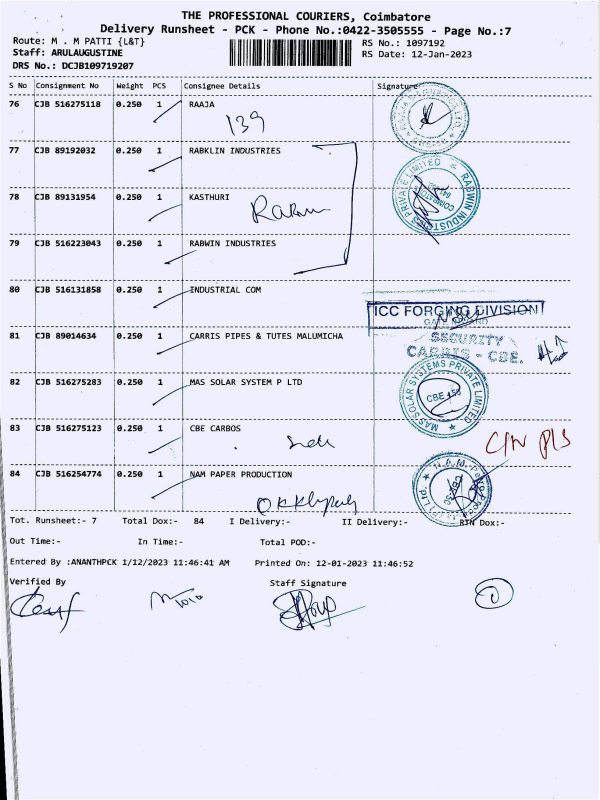 THE PROFESSIONAL COURIERS, Coimbatore
Delivery Runsheet - PCK - Phone No.:0422-3505555 - Page No.:7
Route: M . M PATTI {L&T} RS No.: 1097192
Staff: ARULAUGUSTINE RS Date: 12-Jan-2023
DRS No.: DCJB109719207
S No Consignment No Weight PCS Consignee Details Signature
76 CJB 516275118 0.250 1 RAAJA
139
77 CJB 89192032 0.250 1 RABKLIN INDUSTRIES
78 CJB 89131954 0.250 1 KASTHURI
RABWIN INDUSTRIES PRIVATE LIMITED
COIMBATORE
79 CJB 516223043 0.250 1 RABWIN INDUSTRIES
80 CJB 516131858 0.250 1 INDUSTRIAL COM
ICC FORGING DIVISION
81 CJB 89014634 0.250 1 CARRIS PIPES & TUTES MALUMICHA
SECURITY
CARRIS - CBE.
82 CJB 516275283 0.250 1 MAS SOLAR SYSTEM P LTD
MAS SOLAR SYSTEMS PRIVATE LIMITED
83 CJB 516275123 0.250 1 CBE CARBOS
C/N PLS
84 CJB 516254774 0.250 1 NAM PAPER PRODUCTION
Tot. Runsheet:- 7 Total Dox:- 84 I Delivery:- II Delivery:- RTN Dox:-
Out Time:- In Time:- Total POD:-
Entered By :ANANTHPCK 1/12/2023 11:46:41 AM Printed On: 12-01-2023 11:46:52
Verified By Staff Signature
1